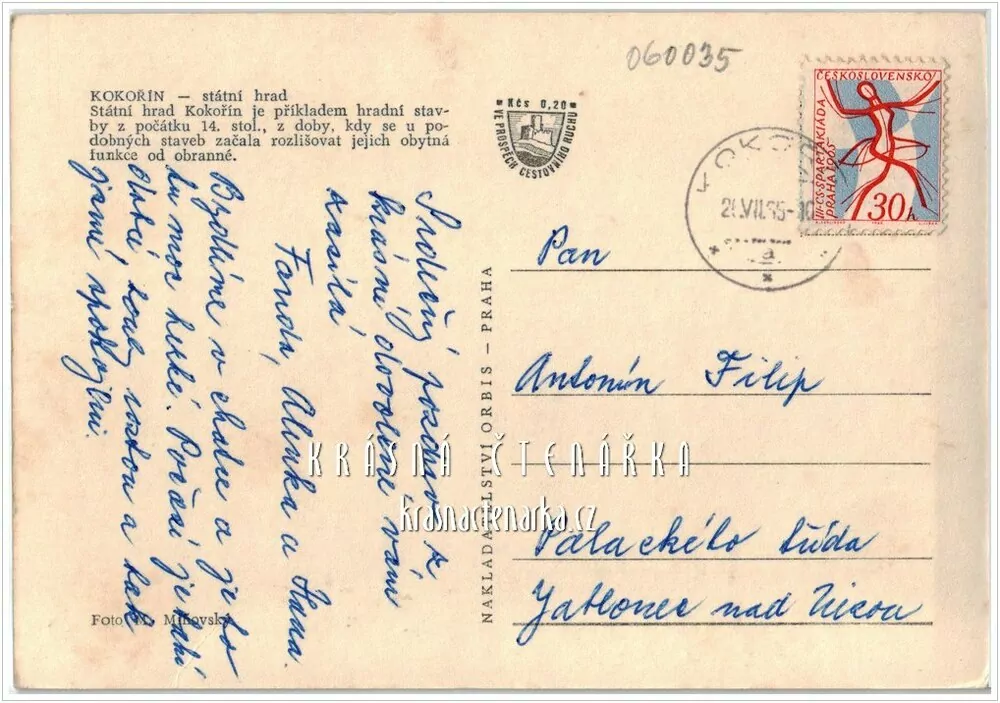 060035
KOKOŘÍN — státní hrad
Státní hrad Kokořín je příkladem hradní stav-
by z počátku 14. stol., z doby, kdy se u po-
dobných staveb začala rozlišovat jejich obytná
funkce od obranné.
Kčs 0,20
VE PROSPĚCH CESTOVNÍHO RUCHU
ČESKOSLOVENSKO
III·CS·SPARTAKIÁDA
PRAHA 1965
30 h
KOKO
VII.65-10
a
Srdečný pozdrav z
krásné dovolené vám
zasílá
Fanda, Alenka a Hana.
Bydlíme v chatě a je to
tu moc hezké. Počasí je také
dobré, houby rostou a tak
jsme spokojeni.
Pan
Antonín Filip
Palackého třída
Jablonec nad Nisou
NAKLADATELSTVÍ ORBIS — PRAHA
Foto M. Mílovský
KRÁSNÁ ČTENÁŘKA
krasnactenarka.cz